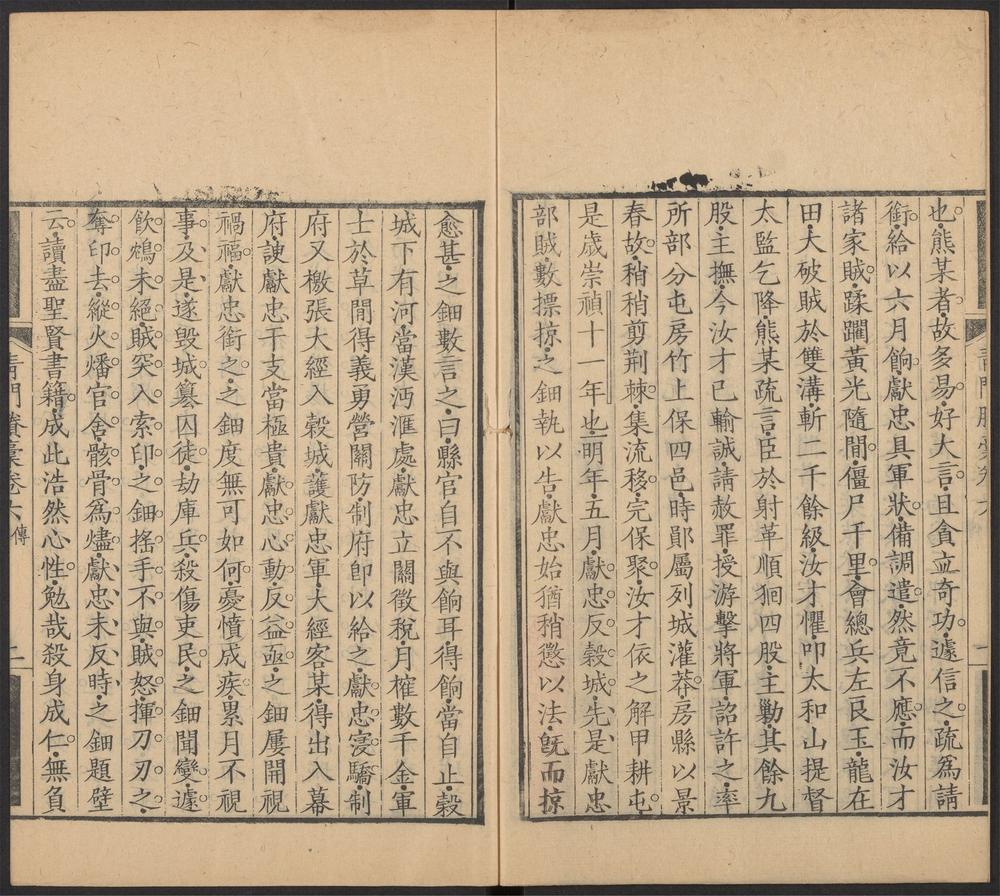 也熊某者故多易好大言且貪立奇功遽信之疏爲請
銜給以六月餉獻忠具軍狀備調遣然竟不應而汝才
諸家賊蹂躪黃光隨間僵尸千里會總兵左良玉龍在
田大破賊於雙溝斬二千餘級汝才懼叩太和山提督
太監乞降熊某疏言臣於射革順狪四股主勦其餘九
股主撫今汝才已輸誠請赦罪授游擊將軍詔許之率
所部分屯房竹上保四邑時鄖屬列城灌莽房縣以景
春故稍稍剪荆棘集流移完保聚汝才依之解甲耕屯
是歲崇禎十一年也明年五月獻忠反穀城先是獻忠
部賊數摽掠之鈿執以告獻忠始猶稍懲以法旣而掠
愈甚之鈿數言之曰縣官自不與餉耳得餉當自止穀
城下有河當漢沔滙處獻忠立關徵稅月榷數千金軍
士於草間得義勇營關防制府卽以給之獻忠寖驕制
府又檄張大經入穀城護獻忠軍大經客某得出入幕
府諛獻忠干支當極貴獻忠心動反益亟之鈿屢開視
禍福獻忠銜之之鈿度無可如何憂憤成疾累月不視
事及是遂毀城纂囚徒劫庫兵殺傷吏民之鈿聞變遽
飮鴆未絕賊突入索印之鈿搖手不與賊怒揮刀刃之
奪印去縱火燔官舍骸骨爲燼獻忠未反時之鈿題壁
云讀盡聖賢書籍成此浩然心性勉哉殺身成仁無負
青門賸稾卷六 傳
二